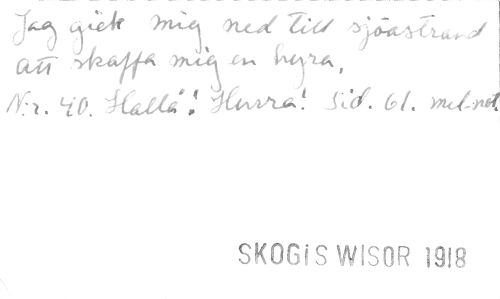 Jag gick mig ned till sjöastrand
att skaffa mig en hyra,
N:r. 40. Hallå! Hurra! Sid. 61. mel-not.
SKOGiS WISOR 1918